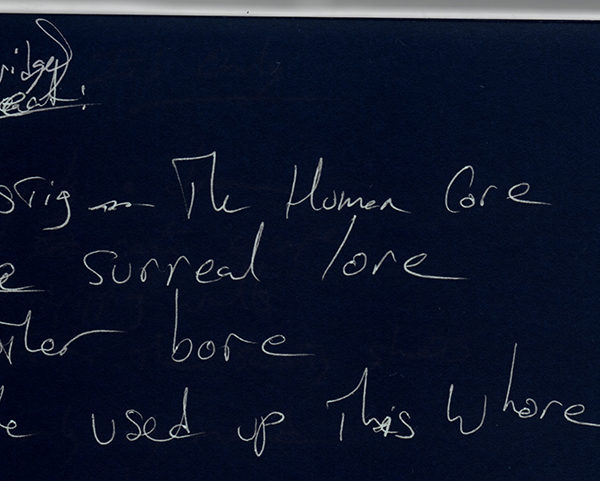 ridge
eat:
stig — The Human Core
e surreal lore
ther bore
e used up This Whore